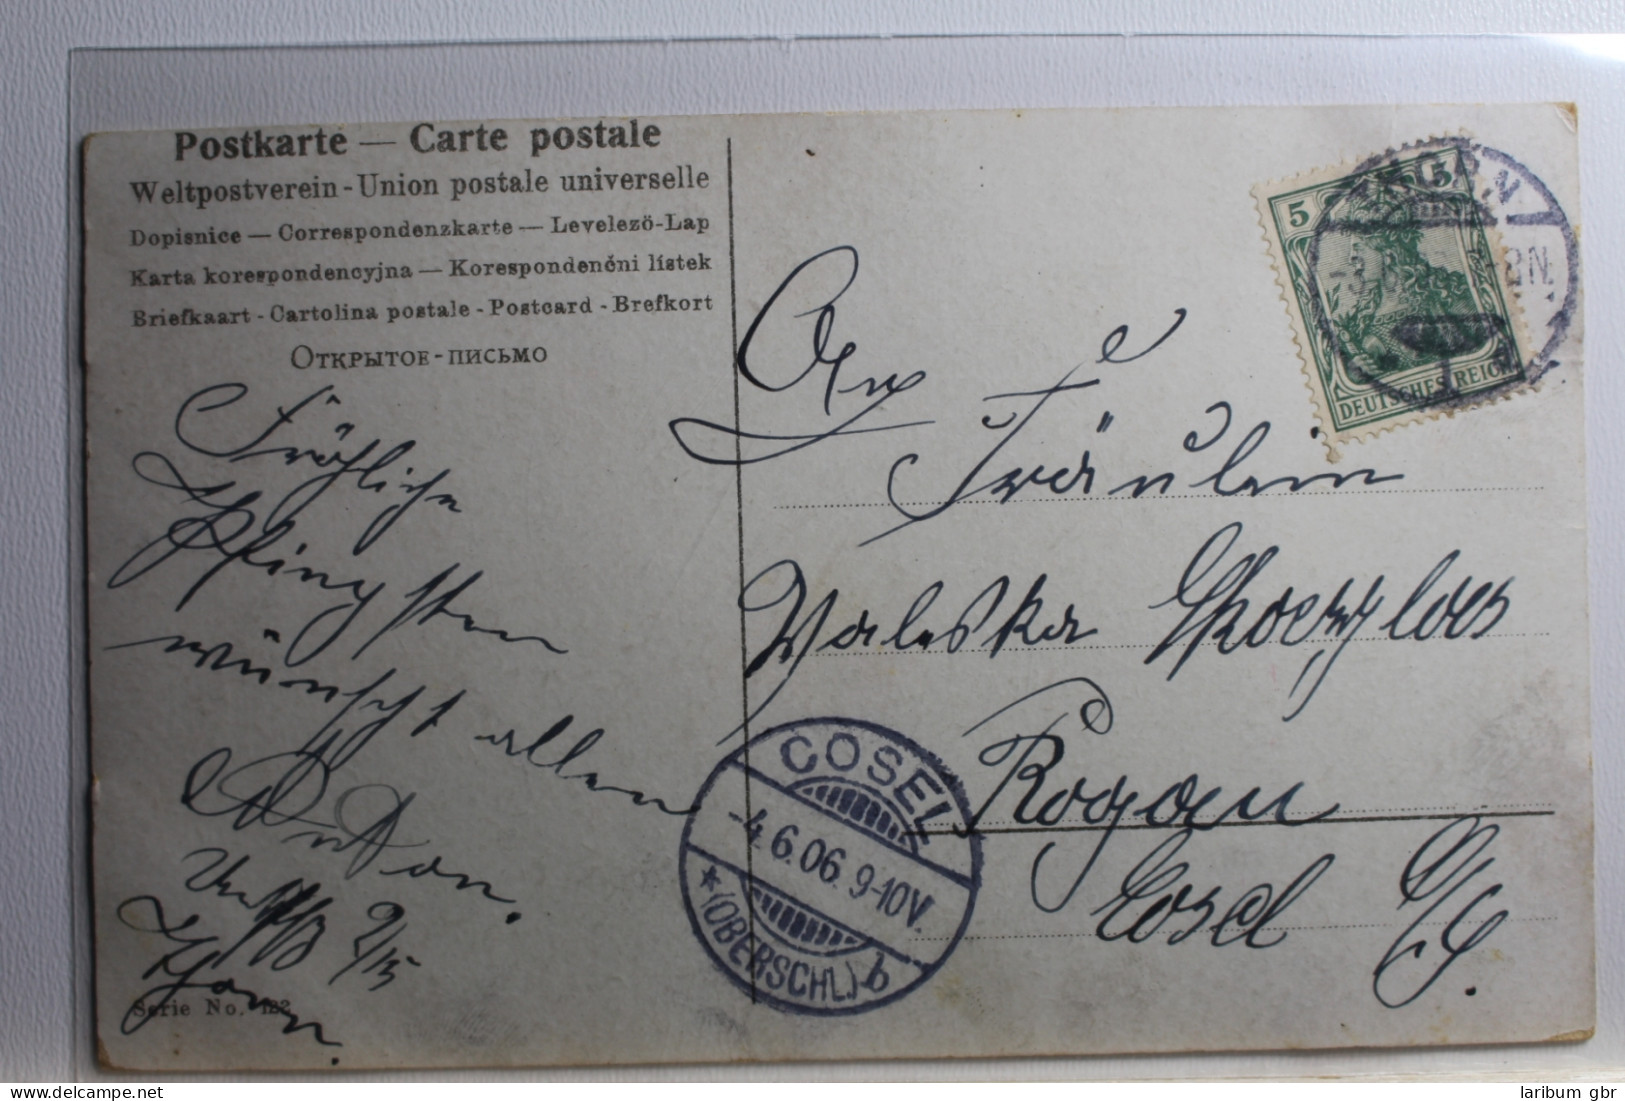 Postkarte — Carte postale
Weltpostverein - Union postale universelle
Dopisnice — Correspondenzkarte — Levelezö-Lap
Karta korespondencyjna — Korespondenčni lístek
Briefkaart - Cartolina postale - Postcard - Brefkort
Открытое-письмо
Fröhliche
Pfingsten
wünscht allen
Anton.
2/15
Serie No. 123
An
Fräulein
Valeska
Rogau
Cosel O/S.
5 5
DEUTSCHES REICH
COSEL
-4.6.06. 9-10V.
* (OBERSCHL.) b
delcampe.net
laribum gbr